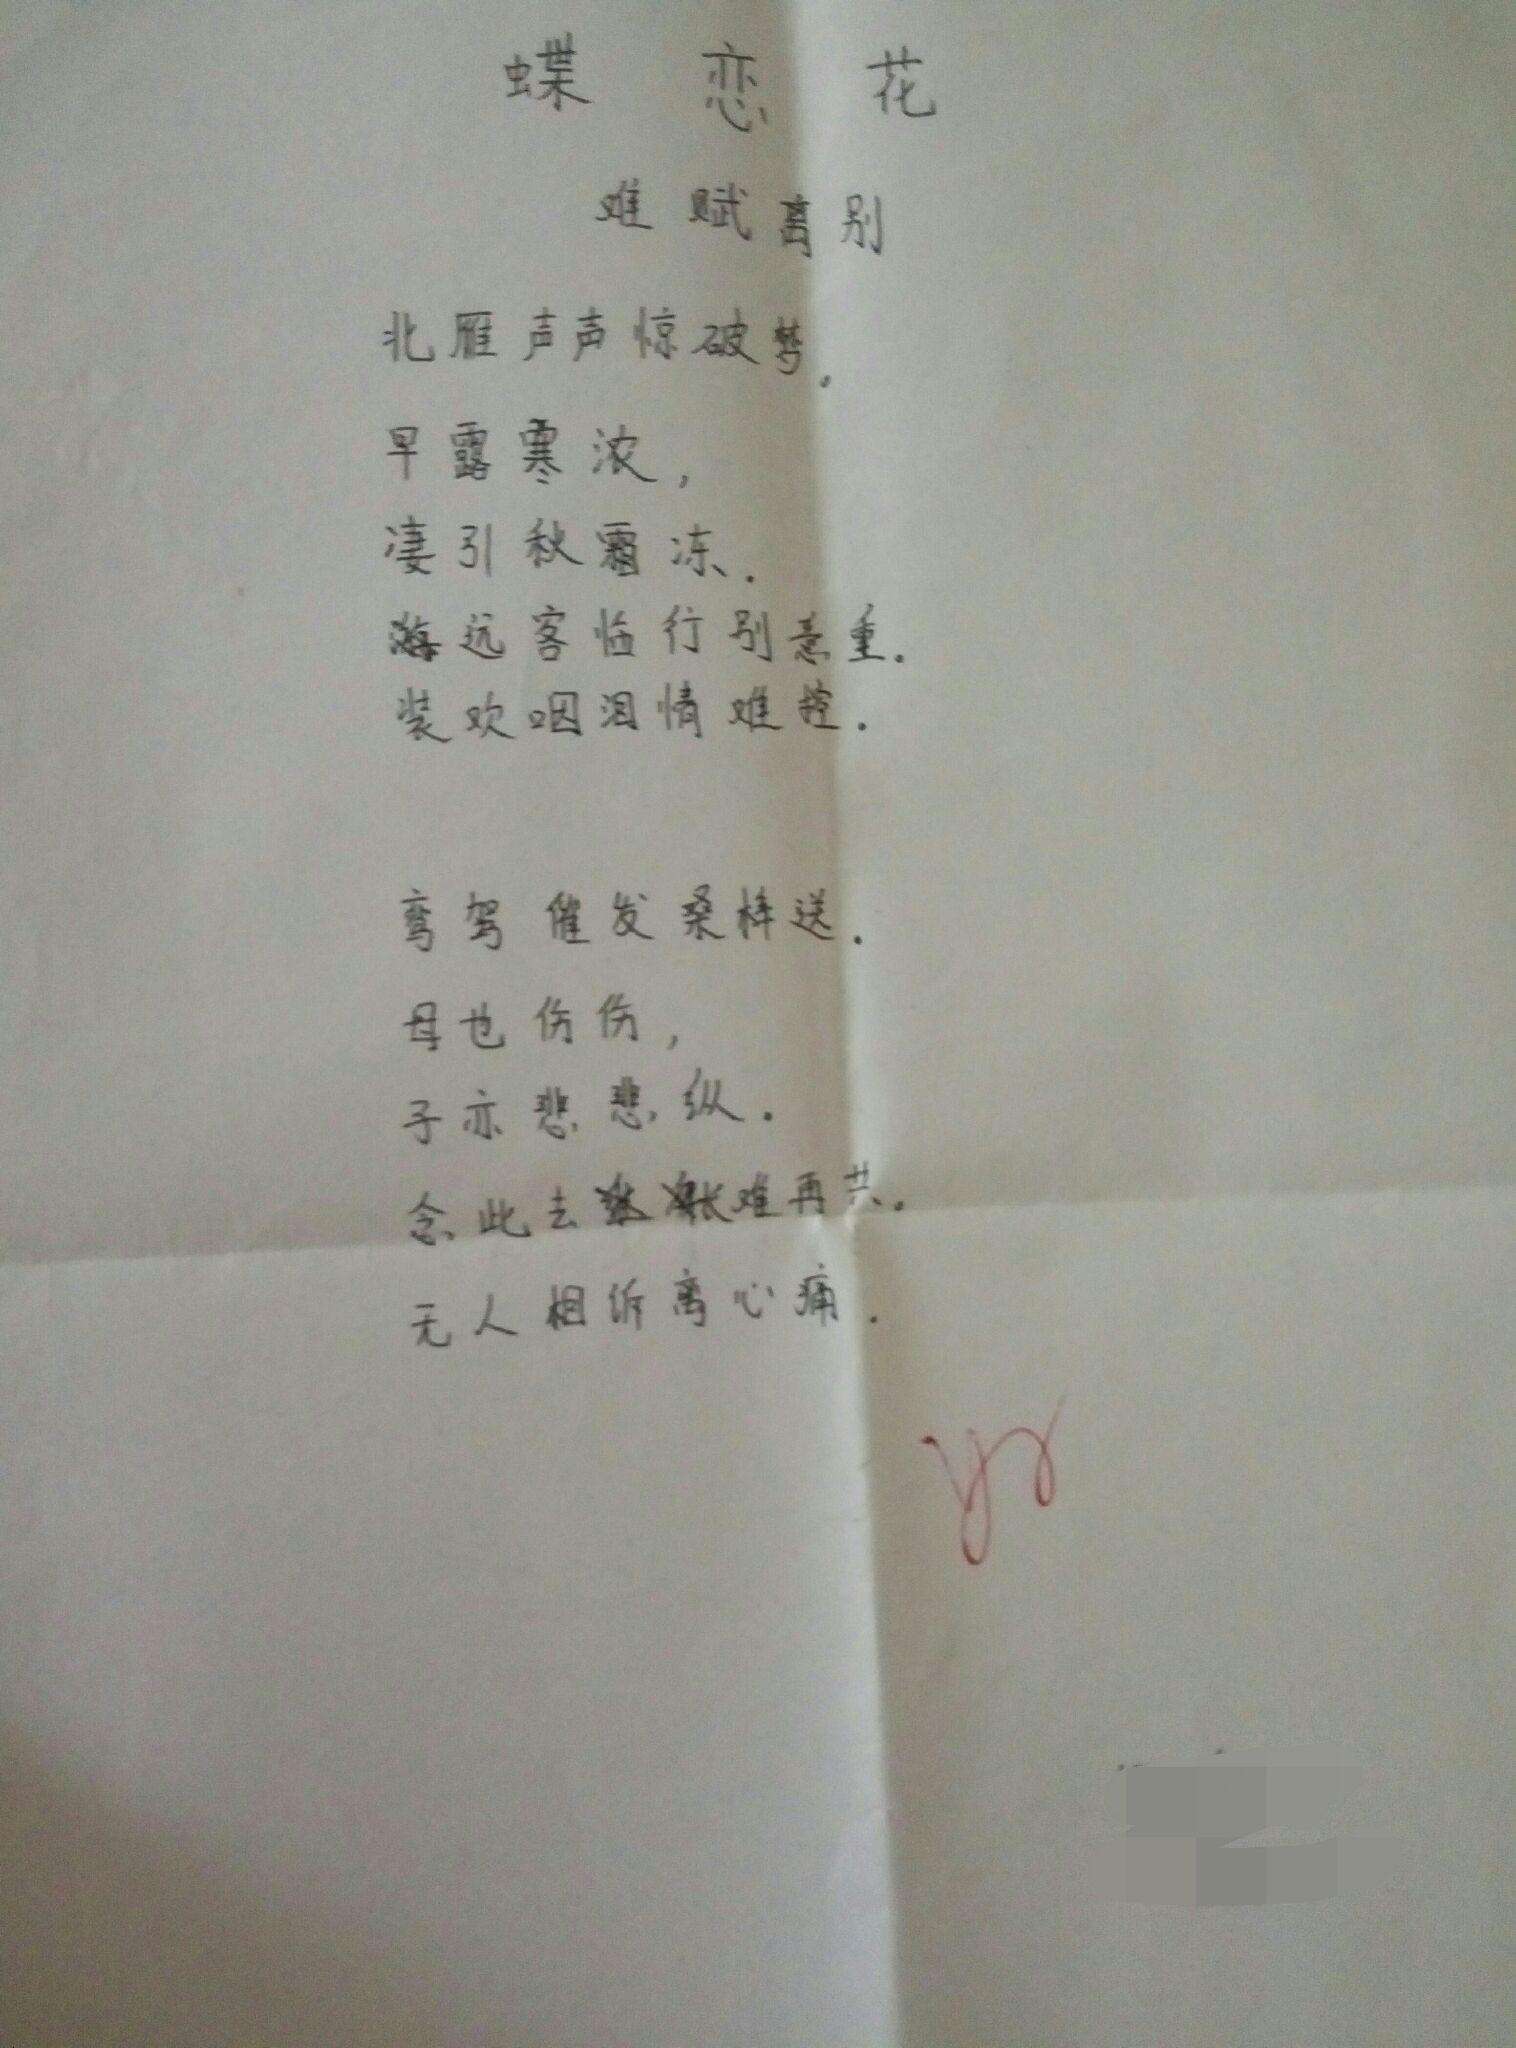 蝶恋花
难赋离别
北雁声声惊破梦.
早露寒浓,
凄引秋霜冻.
远客临行别意重.
装欢咽泪情难控.
鸾驾催发桑梓送.
母也伤伤,
子亦悲悲纵.
念此去怅难再共.
无人相诉离心痛.